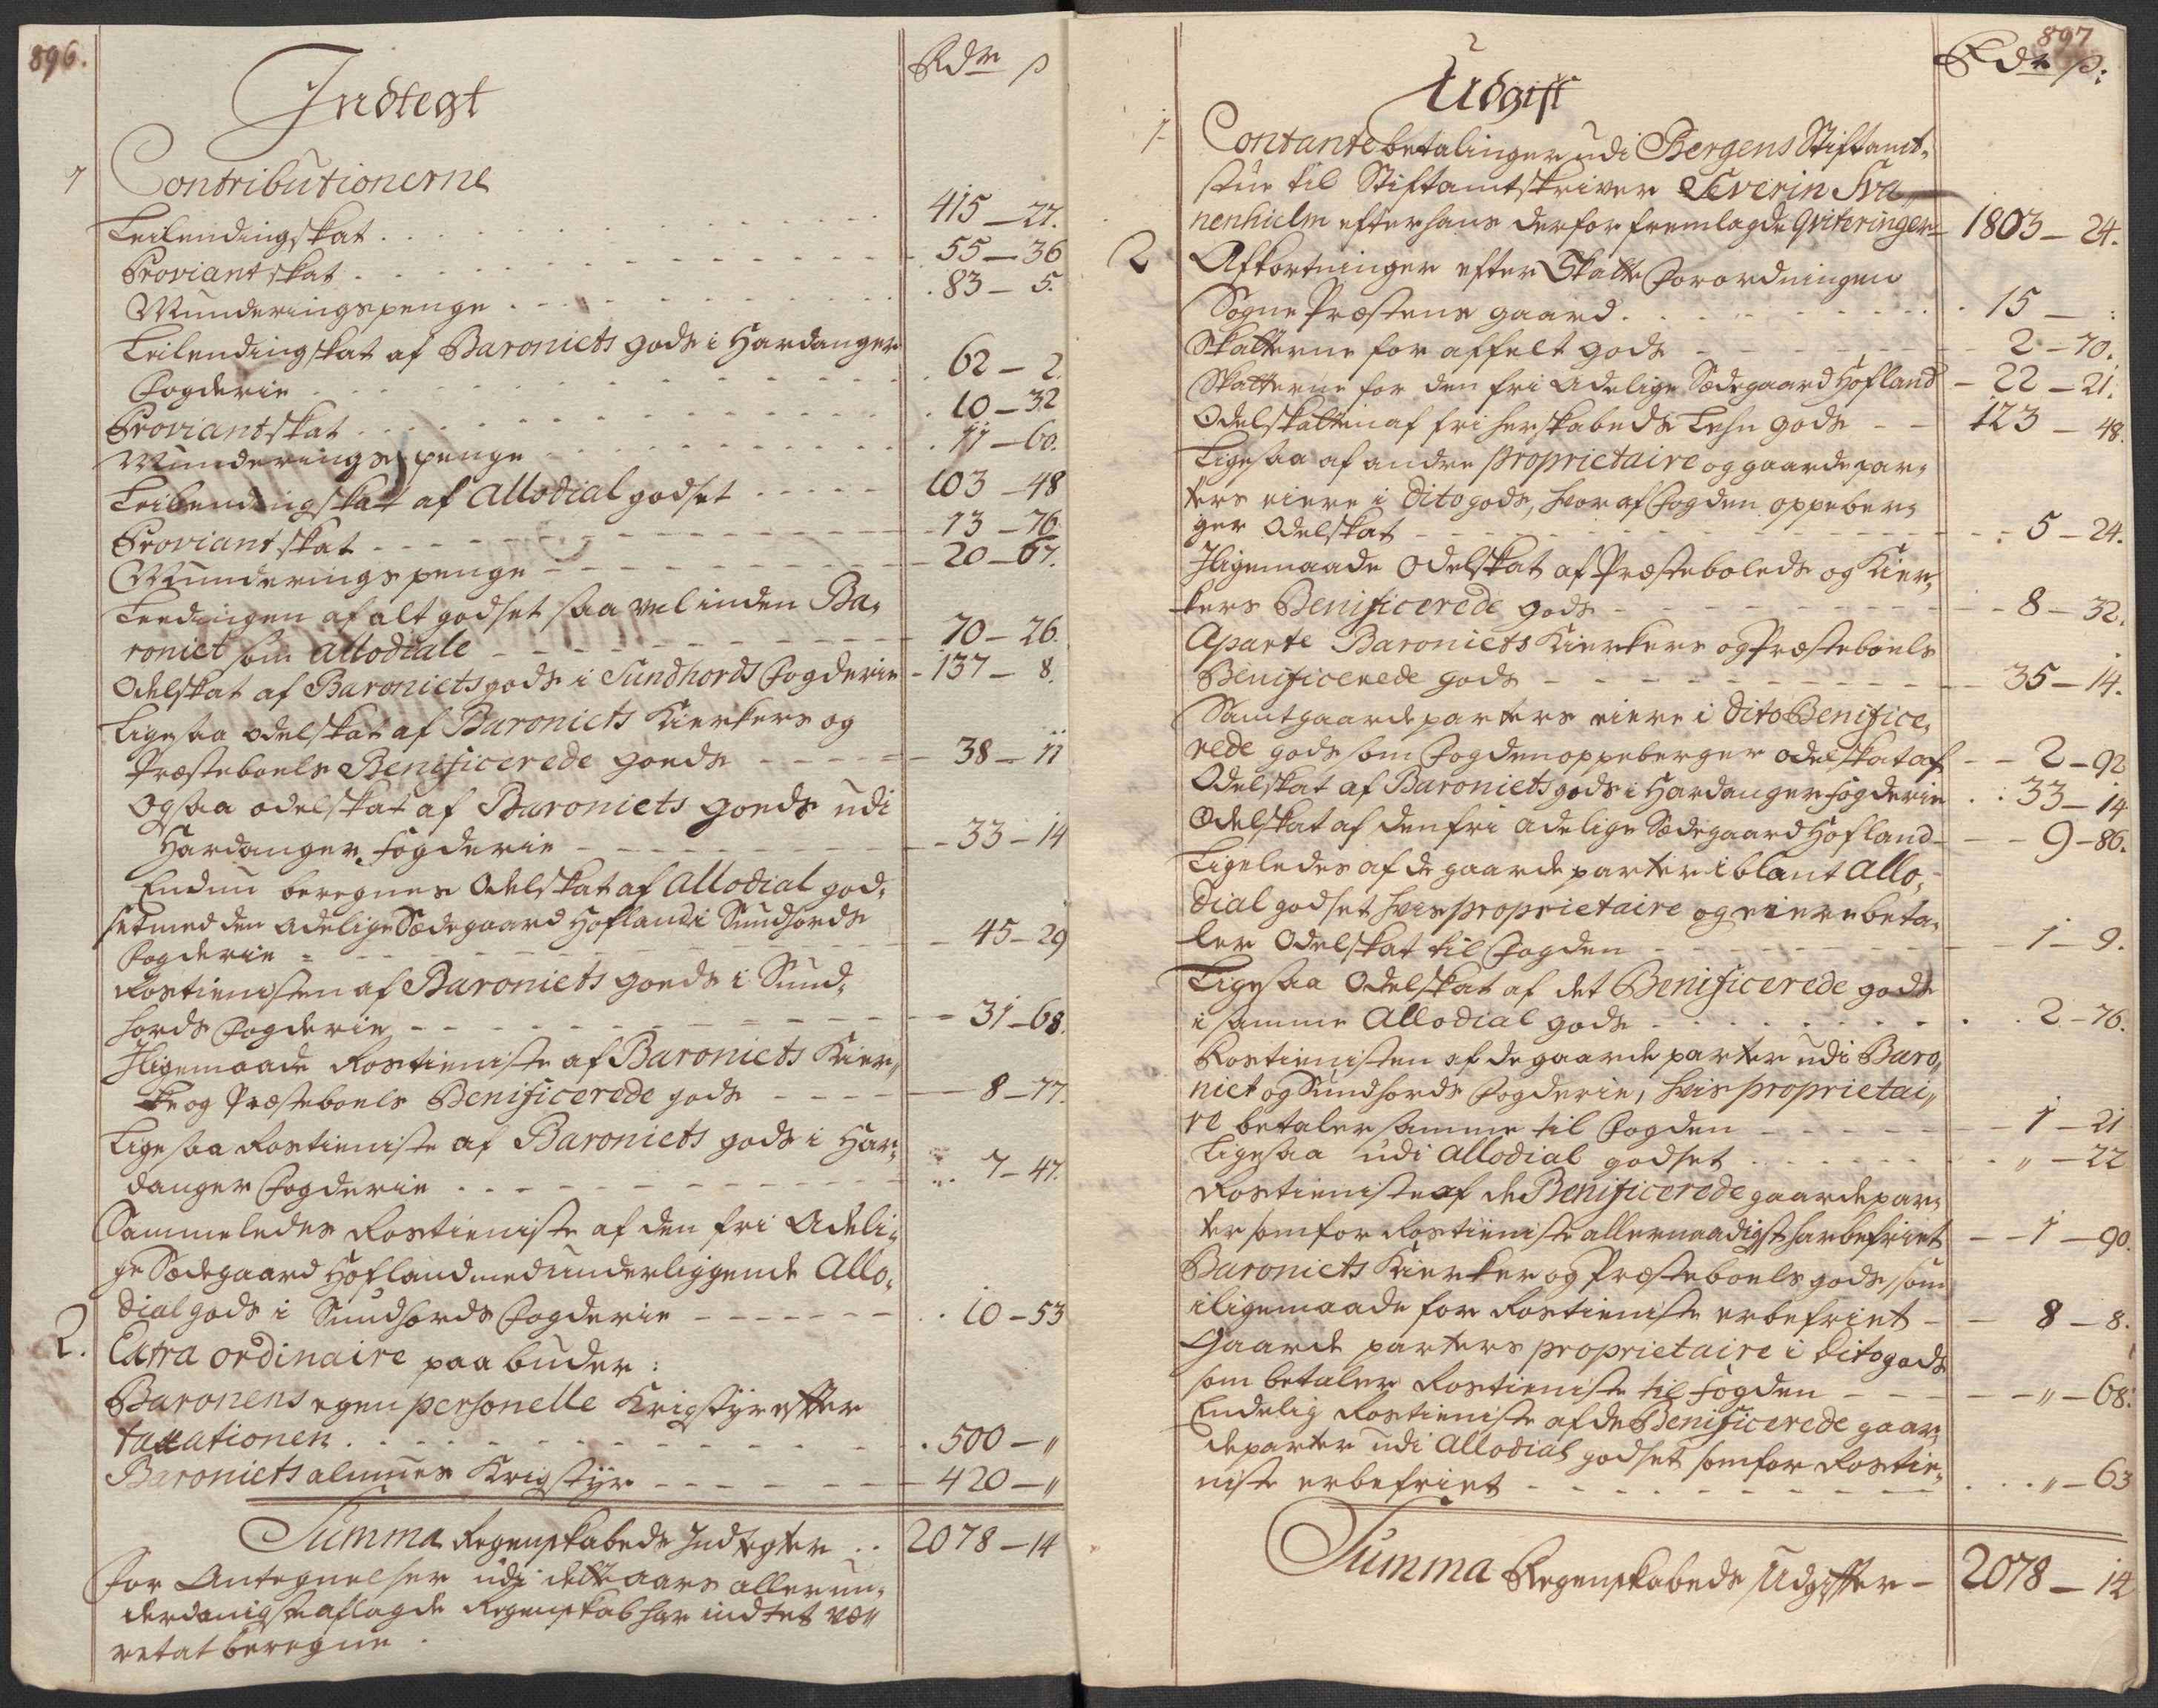 896.
Rdr ß
Indtegt
1 Contributionerne
Leilendingskat . . . 415 – 27.
Proviantskat . . . 55 – 36
Munderingspenge . . . 83 – 5.
Leilendingskat af Baroniets gods i Hardanger
Fogderie . . . 62 – 2.
Proviantskat . . . 10 – 32
Munderings penge . . . 11 – 60.
Leilendingskat af Allodial godset . . . 103 – 48
Proviantskat . . . 13 – 76
Munderings penge . . . 20 – 67.
Leedingen af alt godset saa vel inden Ba-
roniet som allodiale . . . 70 – 26.
Odelskat af Baroniets gods i Sundhords Fogderie – 137 – 8.
Ligesaa odelskat af Baroniets Kierkers og
Præsteboels Benificerede goeds . . . 38 – 11
Ogsaa odelskat af Baroniets goeds udi
Hardanger Fogderie . . . 33 – 14
Endnu beregnes Odelskat af Allodial god-
set med den adelige Sædegaard Hofland i Sundhords
Fogderie . . . 45 – 29
Rostienisten af Baroniets goeds i Sund-
hords Fogderie . . . 31 – 68.
Iligemaade Rostieniste af Baroniets Kier-
ke og Præsteboels Benificerede gods . . . 8 – 77.
Ligesaa Rostieniste af Baroniets gods i Har-
danger Fogderie . . . 7 – 47.
Sammeledes Rostieniste af den fri Adeli-
ge Sædegaard Hofland med underliggende Allo-
dial gods i Sundhords Fogderie . . . 10 – 53
2. Extra ordinaire paabuder:
Baronens egen personelle Krigstyr efter
taxationen . . . 500 – "
Baroniets almues Krigstyr . . . 420 – "
Summa Regenskabeds Indtegter . . 2078 – 14
For Antegnelser udi dette aars allerun-
derdanigst aflagde Regenskab har indtet væ-
ret at beregne.
897
Rdr ß:
Udgift
1. Contante betalinger udi Bergens Stiftamt-
stue til Stiftamtskriver Severin Sva-
nenhielm efter hans derfor fremlagde Qviteringer – 1803 – 24.
2 Afkortninger efter Skatte Forordningen
Sogne Præstens gaard . . . 15 – :
Skatterne for affelt gods . . . 2 – 70.
Skatterne for den fri adelige Sædegaard Hofland – 22 – 21.
Odelskatten af friherskabeds Lehn gods – – 123 – 48.
Ligesaa af andre proprietaire og gaardepar-
ters eiere i dito gods, hvor af Fogden oppeber-
ger Odelskat . . . 5 – 24.
Iligemaade Odelskat af Præsteboleds og Kier-
kers Benificerede gods . . . 8 – 32.
Aparte Baroniets Kierkers og Præsteboels
Benificerede gods . . . 35 – 14.
Samt gaardeparters eiere i dito Benifice-
rede gods som Fogden oppeberger odelskat af – – 2 – 92
Odelskat af Baroniets gods i Hardanger Fogderie . : 33 – 14
Odelskat af den fri adelige Sædegaard Hofland – – 9 – 86.
Ligeledes af de gaardeparter iblant Allo-
dial godset hvis proprietaire og eiere beta-
ler Odelskat til Fogden . . . 1 – 9.
Ligesaa Odelskat af det Benificerede gods
i samme Allodial gods . . . 2 – 76.
Rostienisten af de gaardeparter udi Baro-
niet og Sundhords Fogderie, hvis proprietai-
re betaler samme til Fogden . . . 1 – 21
Ligesaa udi Allodial godset . . . " – 22
Rostieniste af de Benificerede gaardepar-
ter som for Rostieniste allernaadigst har befriet – – 1 – 90.
Baroniets Kierker og Præsteboels gods som
iligemaade for Rostieniste er befriet – – 8 – 8.
Gaarde parters proprietaire i dito gods
som betaler Rostieniste til Fogden . . . " – 68.
Endelig Rostieniste af de Benificerede gaar-
departer udi Allodial godset som for Rostie-
niste er befriet . . . " – 63
Summa Regenskabeds Udgifter – 2078 – 14